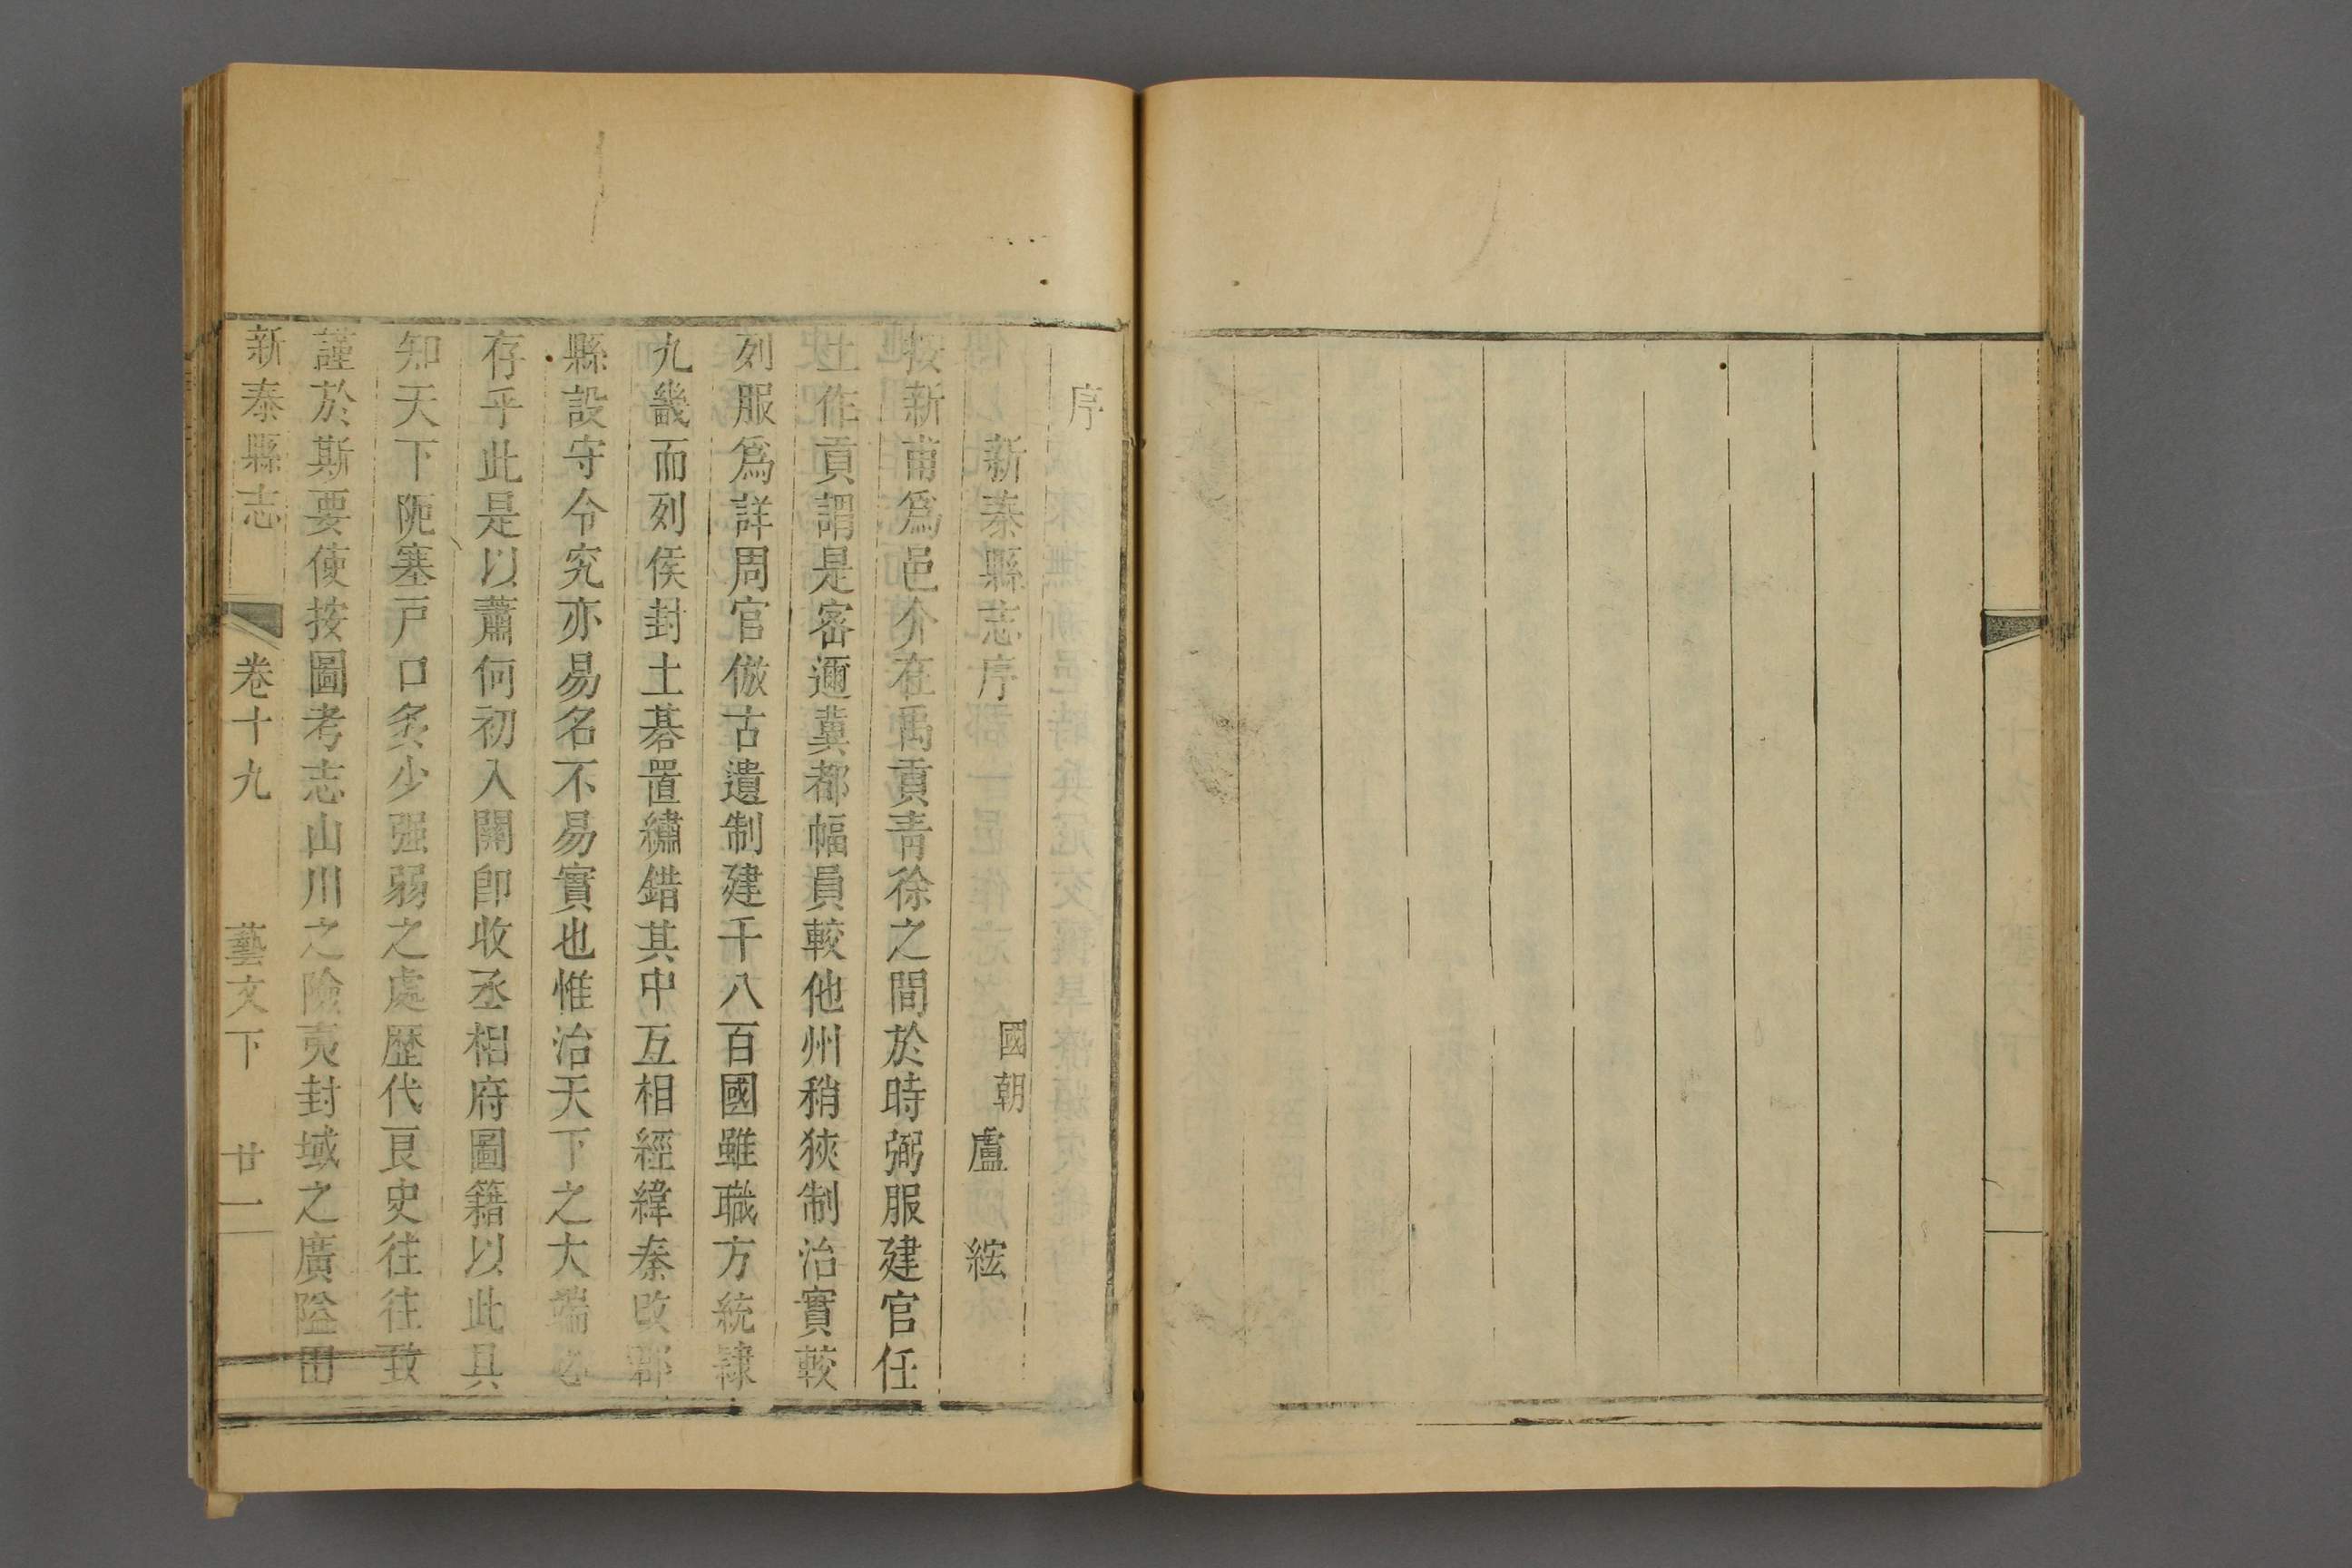 序
新泰縣志序
國朝 盧 綋
按新甫爲邑介在禹貢青徐之間於時弼服建官任
土作貢謂是密邇冀都幅員較他州稍狹制治實較
列服爲詳周官倣古遺制建千八百國雖職方統隸
九畿而列侯封土碁置繡錯其中互相經緯秦改郡
縣設守令究亦易名不易實也惟治天下之大端必
存乎此是以蕭何初入關卽收丞相府圖籍以此具
知天下阨塞戸口多少强弱之處歴代良史徃徃致
謹於斯要使按圖考志山川之險夷封域之廣隘田
新泰縣志 卷十九 藝文下 廿一